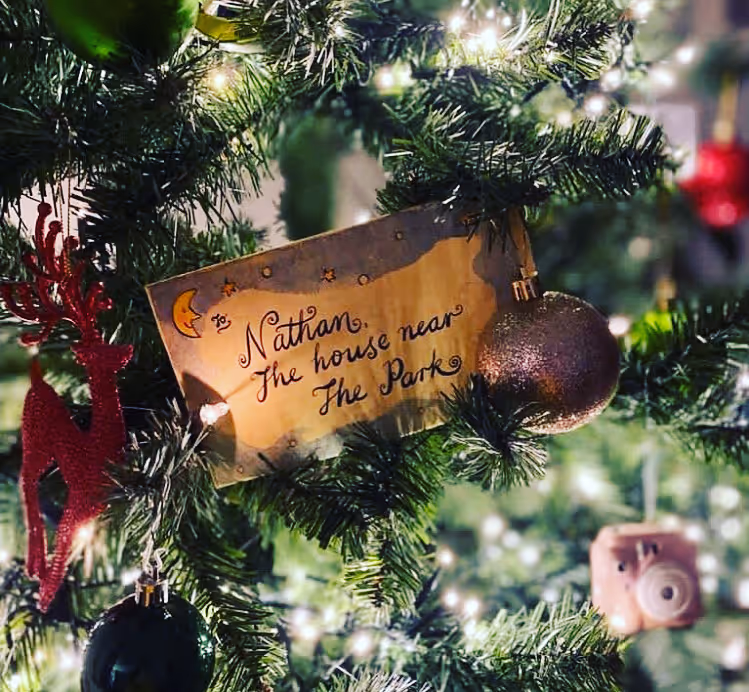 To
Nathan.
The house near
The Park